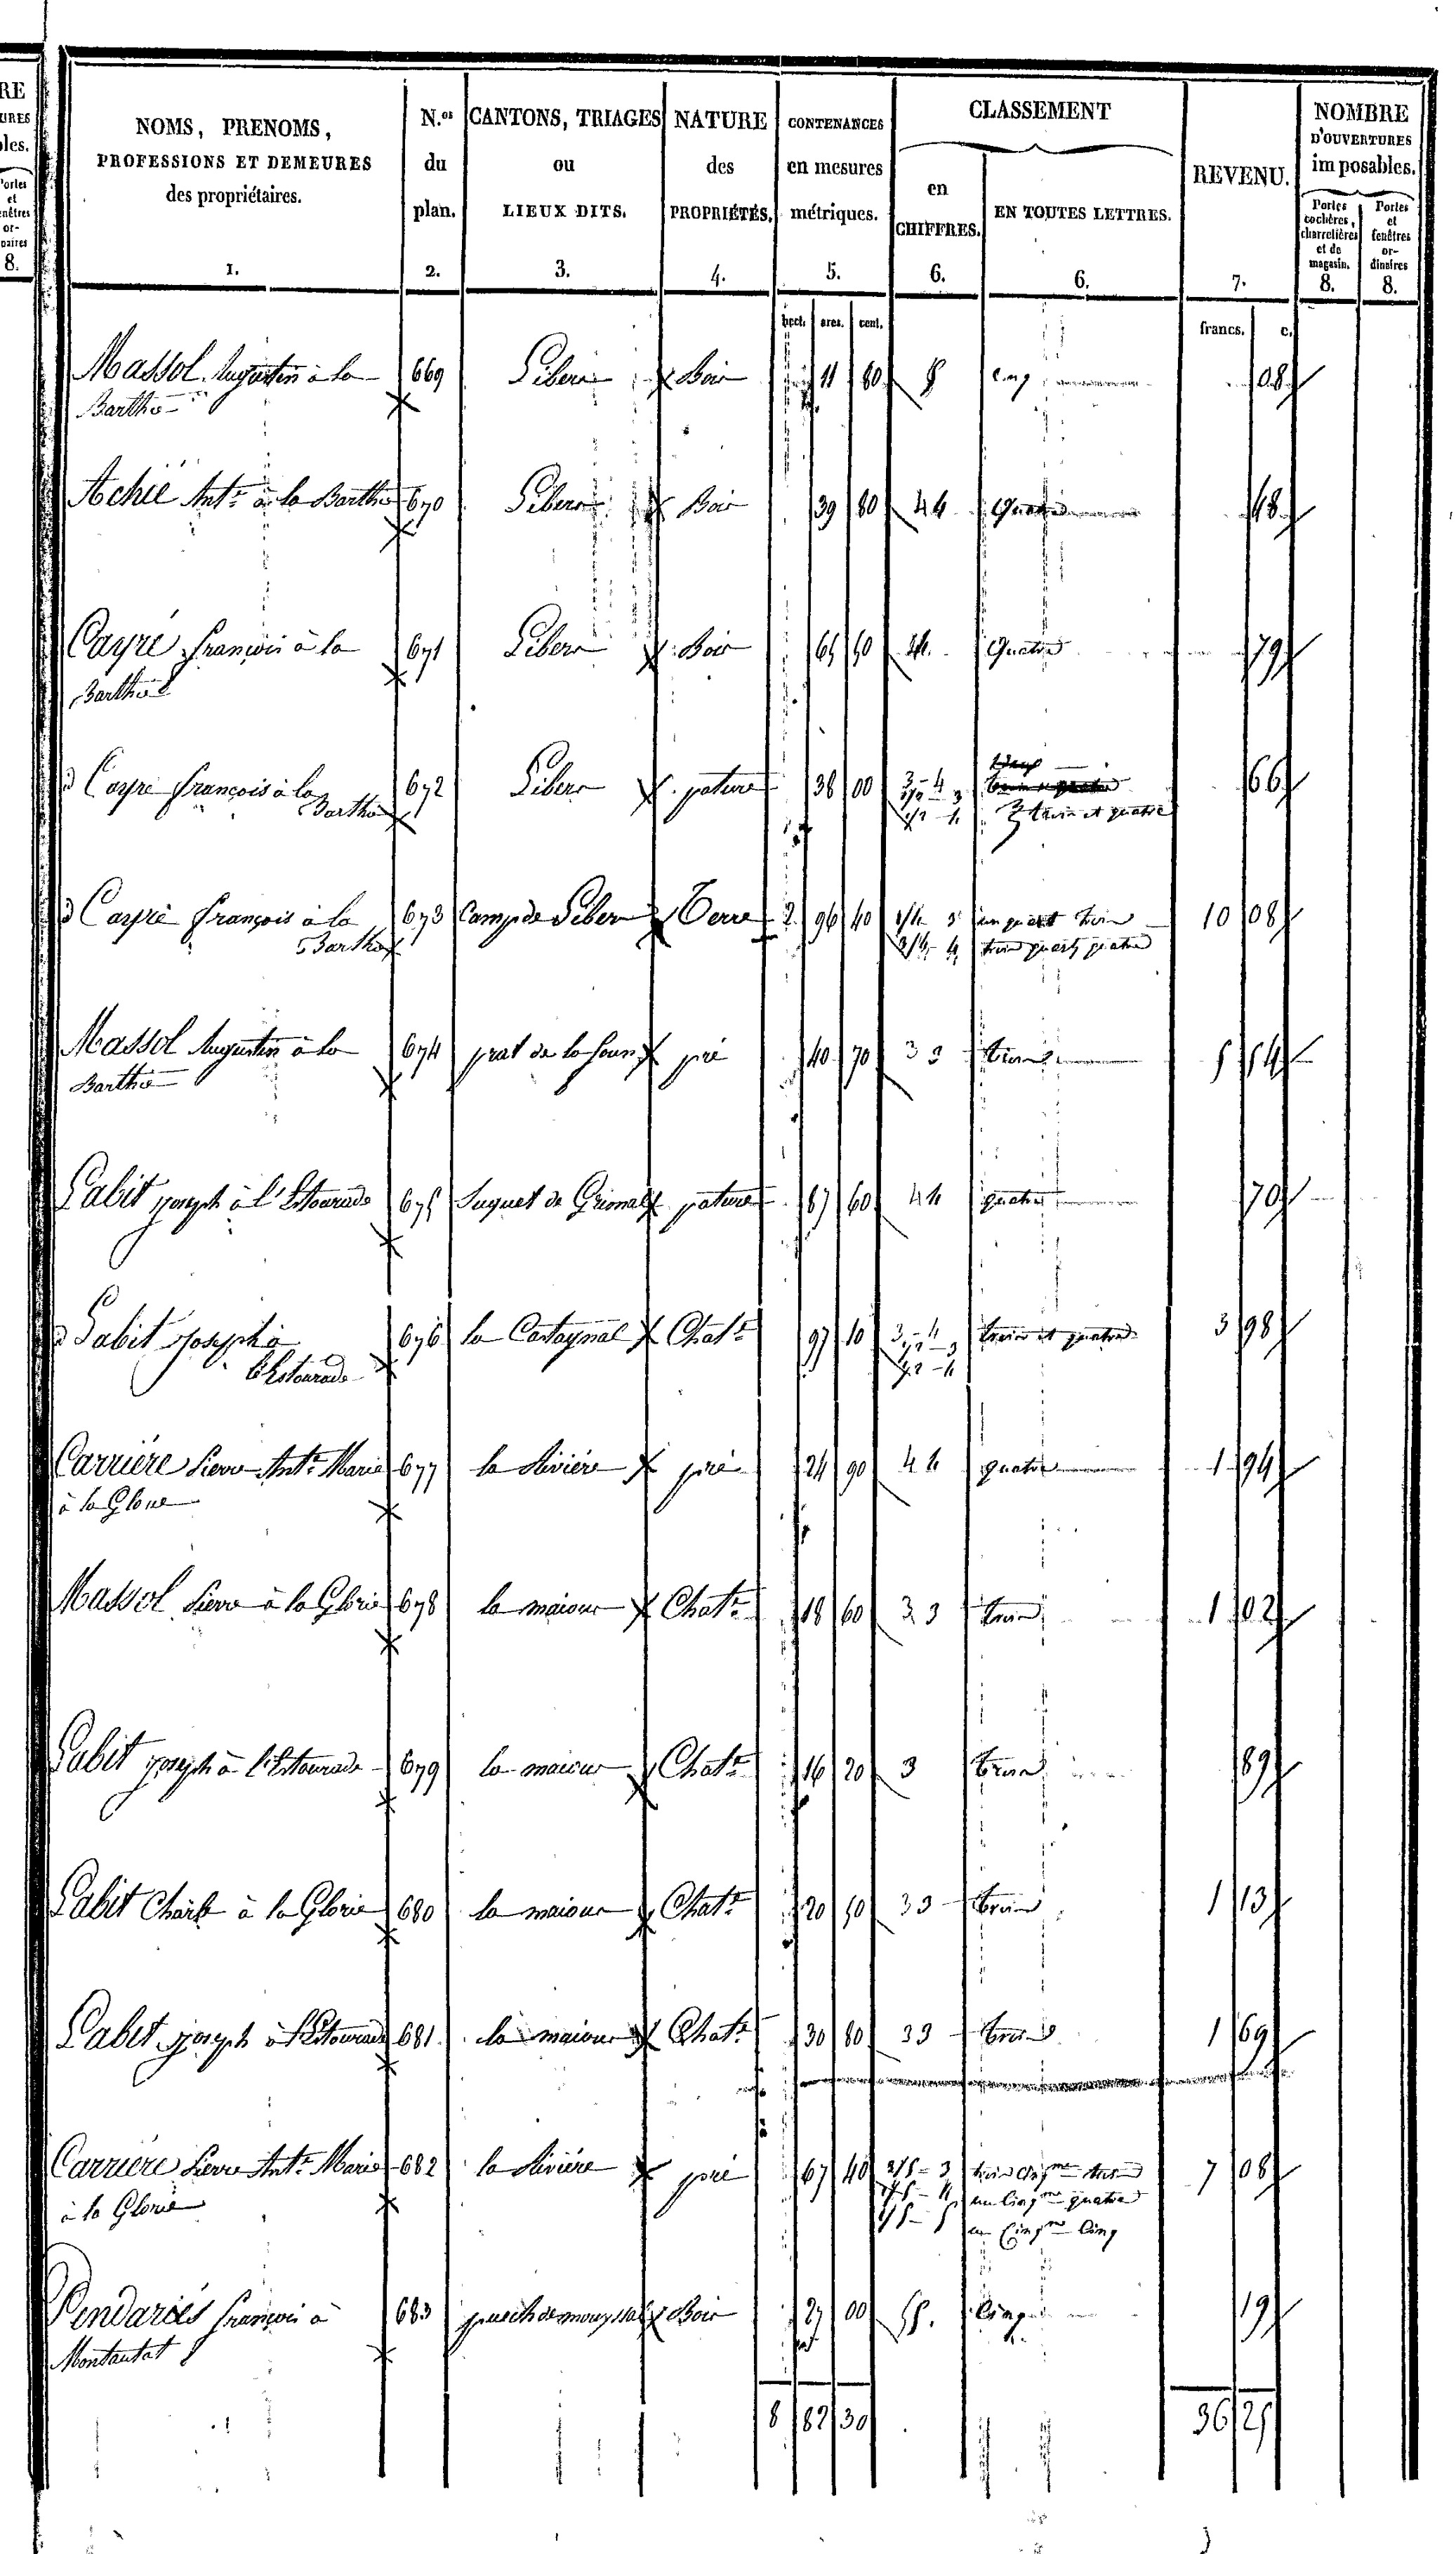 RE
URES
les.
Portes
et
fenêtres
or-
naires
8.
NOMS, PRENOMS,
PROFESSIONS ET DEMEURES
des propriétaires.
1.
N.os
du
plan.
2.
CANTONS, TRIAGES
ou
LIEUX DITS.
3.
NATURE
des
PROPRIÉTÉS.
4.
CONTENANCES
en mesures
métriques.
5.
CLASSEMENT
en
CHIFFRES.
6.
EN TOUTES LETTRES.
6.
REVENU.
7.
NOMBRE
D'OUVERTURES
imposables.
Portes
cochères,
charretières
et de
magasin.
8.
Portes
et
fenêtres
or-
dinaires
8.
hect. ares. cent. francs. c.
Massol Augustin à la 669 Bois 11 80 5 cinq 08
Barthe
Achié Ant.e à la Barthe 670 Bois 39 80 4 4 Quatre 48
Cayré françois à la 671 Bois 65 50 4 Quatre 79
Barthe
Cayré françois à la 672 pature 38 00 3-4 66
Barthe 1/2-3
1/2-4 trois et quatre
Cayré françois à la 673 Camp de Terre 2 96 40 1/4 3 un quart trois 10 08
Barthe 3/4-4 trois quarts quatre
Massol Augustin à la 674 prat de la foun pré 40 70 3 3 trois 5 54
Barthe
Labit joseph à l'Estourade 675 Suquet de pature 87 60 4 4 quatre 70
Labit joseph à 676 la Castagnal Chat.e 97 10 3-4 trois et quatre 3 98
l'Estourade 1/2-3
1/2-4
Carrière Pierre Ant.e Marie 677 la Rivière pré 24 90 4 4 quatre 1 94
à la Glorie
Massol Pierre à la Glorie 678 la maiour Chat.e 18 60 3 3 trois 1 02
Labit joseph à l'Estourade 679 la maiour Chat.e 16 20 3 trois 89
Labit Charle à la Glorie 680 la maiour Chat.e 20 50 3 3 trois 1 13
Labit joseph à l'Estourade 681 la maiour Chat.e 30 80 3 3 trois 1 69
Carrière Pierre Ant.e Marie 682 la Rivière pré 67 40 3/5-3 trois cinq.me trois 7 08
à la Glorie 1/5-4 un cinq.me quatre
1/5-5 un cinq.me cinq
Pendariés françois à 683 Bois 27 00 5 5. Cinq 19
Montautat
8 82 30 36 25